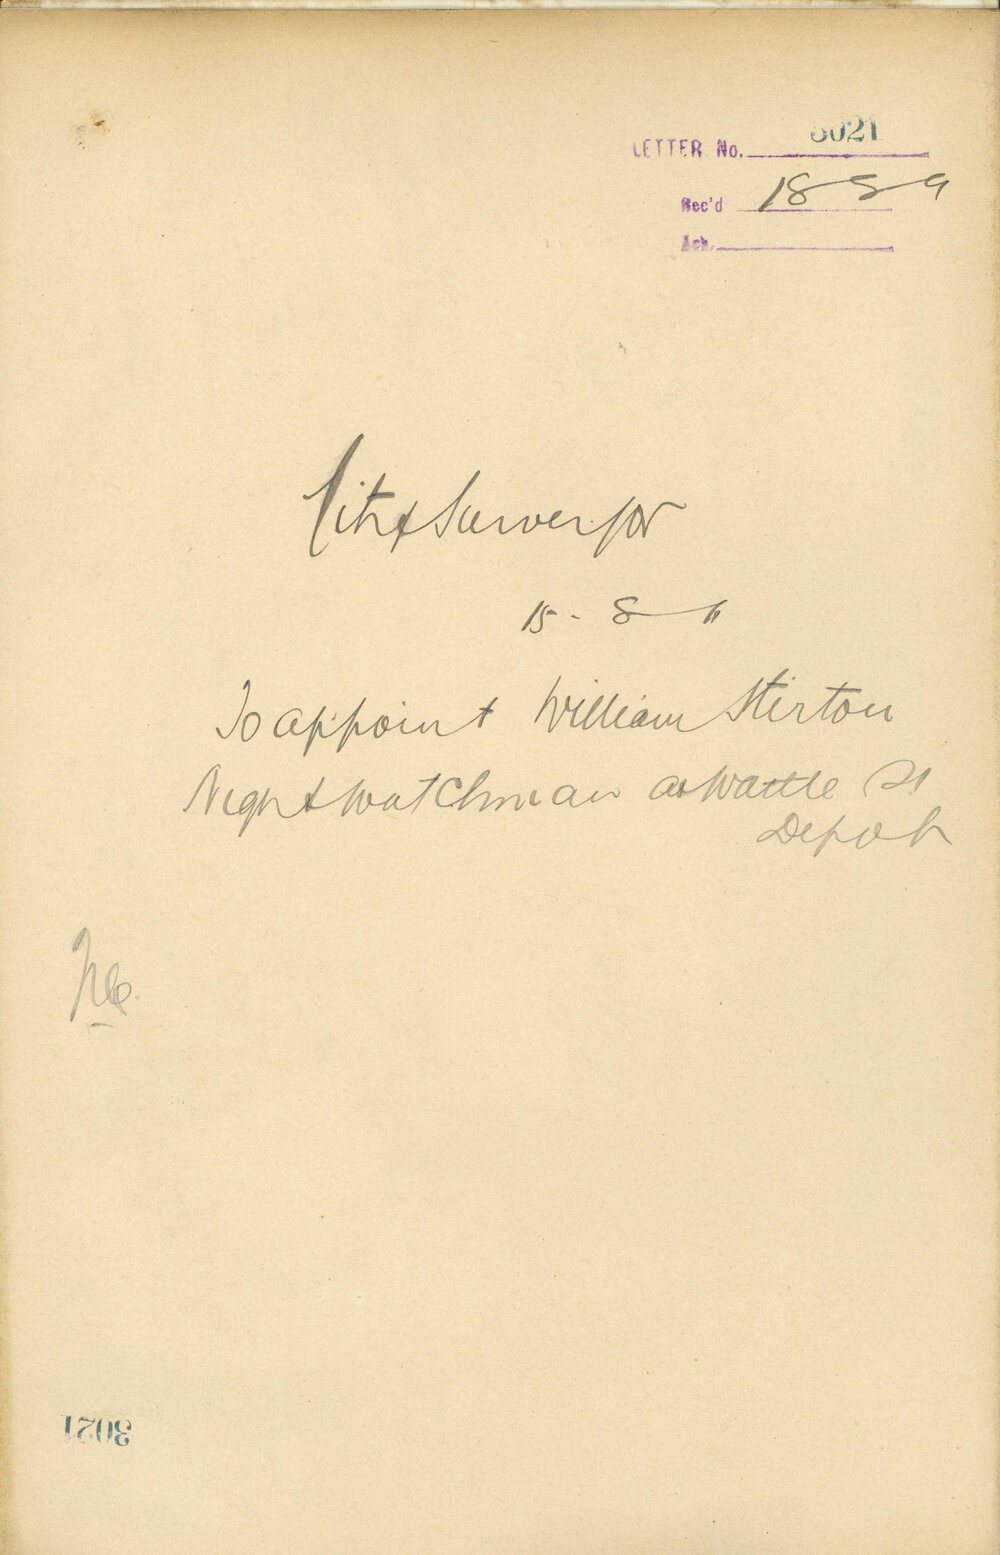 LETTER No. 3021
Rec'd 1889
Ack.
City Surveyor
15 - 8 - 
To appoint William Stirton
Night watchman at Wattle St
Depot
3021